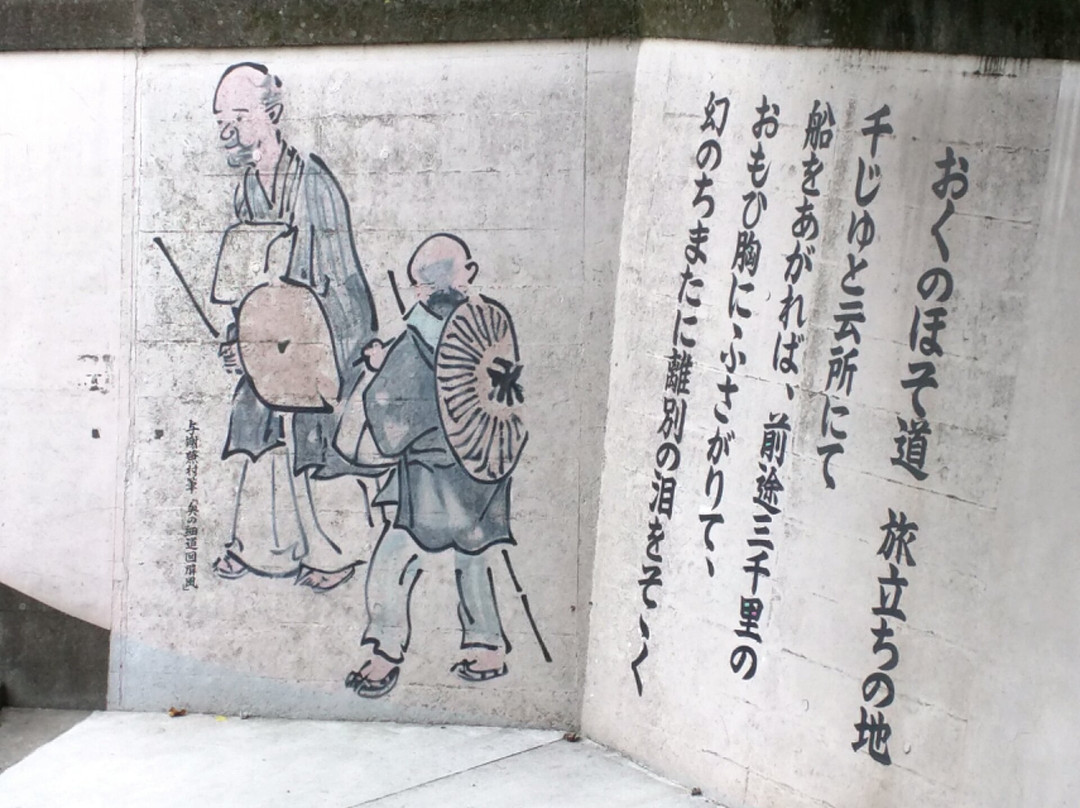 おくのほそ道　旅立ちの地
千じゆと云所にて
船をあがれば、前途三千里の
おもひ胸にふさがりて、
幻のちまたに離別の泪をそゝく
永
与謝蕪村筆「奥の細道図屏風」